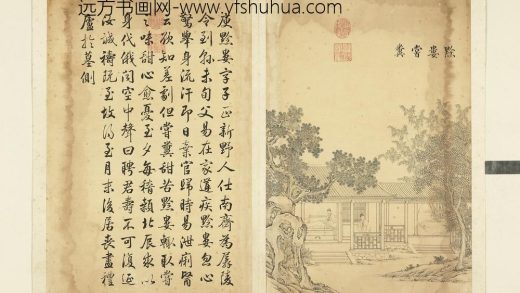 远方书画网- www.yfshuhua.com
黔婁嘗糞
庾黔婁字子正新野人仕南齊為孱陵
令到縣未旬父易在家遘疾黔婁忽心
驚舉身流汗即日棄官歸時易泄痢醫
云欲知差劇但嘗糞甜苦黔婁輒取嘗
之味甜心愈憂至夕每稽顙北辰求以
身代俄聞空中聲曰聘君壽不可復延
汝誠禱既至故得至月末後居喪盡禮
廬於墓側